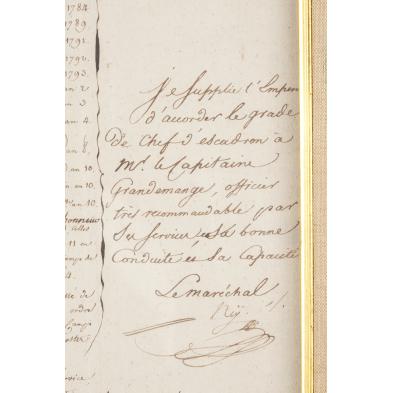 1784
1789
1791.
1792.
1793.
an 2
an 3.
an 4.
an 8,
an.
an 10.
an 10.
an 10.
bonneur
11 en
Camp de
4.
de
ordre
Camp
Service
Je Supplie l'Emper
d'accorder le grade
De Chef d'escadron à
Mr. le Capitaine
Grandemange, officier
très recommandable par
Ses Services, Sa bonne
Conduite et Sa Capacité
Le maréchal
Ney